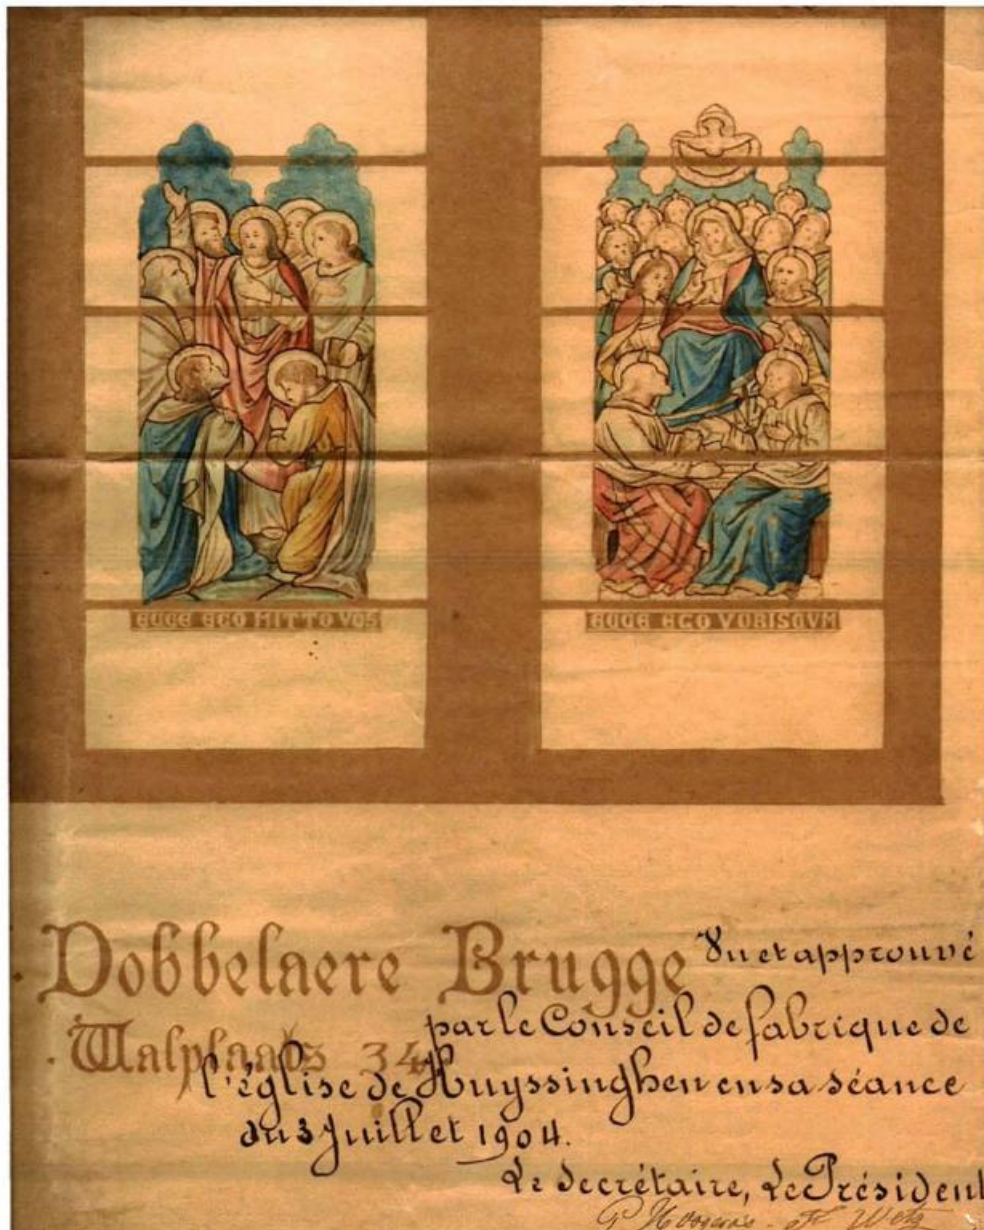 ECCE EGO MITTO VOS
ECCE EGO VOBISCVM
Dobbelaere Brugge
Walplaats 34
Vu et approuvé
par le Conseil de fabrique de
l'église de Huyssinghen en sa séance
du 3 Juillet 1904.
Le Secrétaire, Le Président